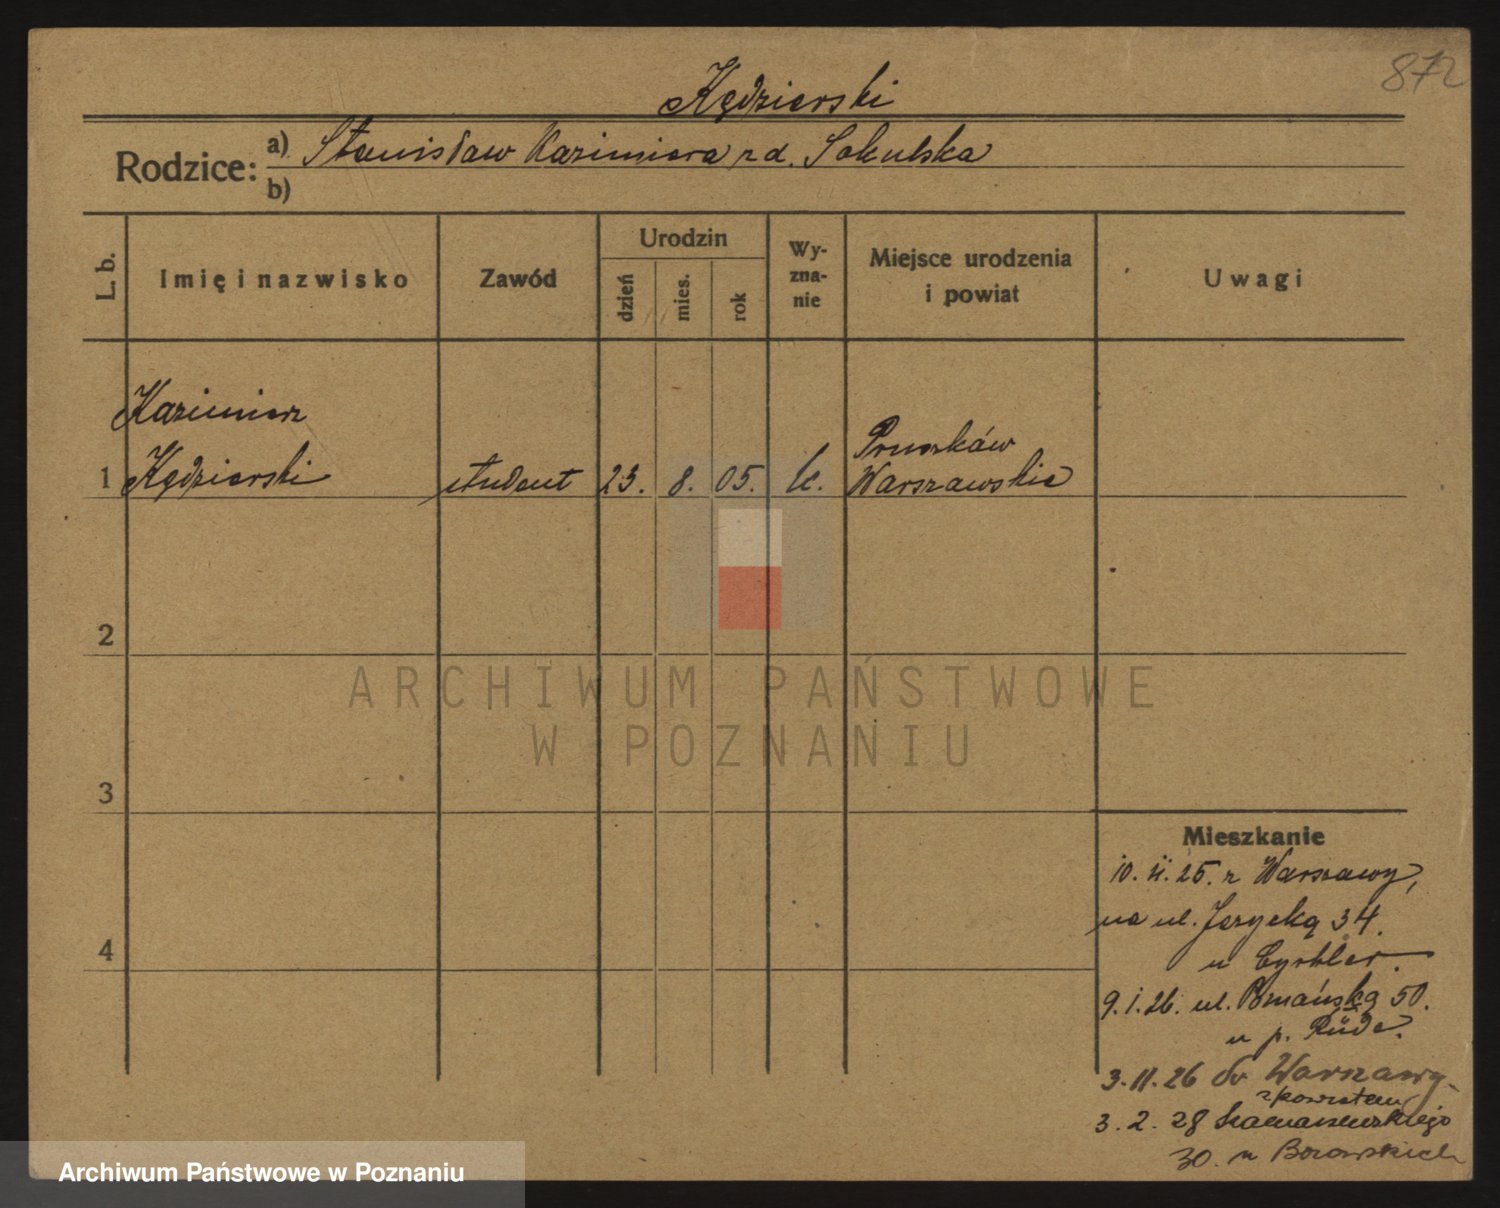 872
Kędzierski
Rodzice: a) Stanisław Kazimiera z d. Sokulska
b)
L. b.
Imię i nazwisko
Zawód
Urodzin
dzień
mies.
rok
Wy-
zna-
nie
Miejsce urodzenia
i powiat
Uwagi
Kazimierz
1 Kędzierski student 23. 8. 05. k. Pruszków
Warszawskie
2
3
4
ARCHIWUM PAŃSTWOWE
W POZNANIU
Mieszkanie
10. II. 25. z Warszawy,
na ul. Jeżycką 34.
u
9. 1. 26. ul. Poznańską 50.
u p. Rüde.
3. 11. 26 do Warszawy
z powrotem
3. 2. 28 Szamarzewskiego
30. u Borowskich
Archiwum Państwowe w Poznaniu